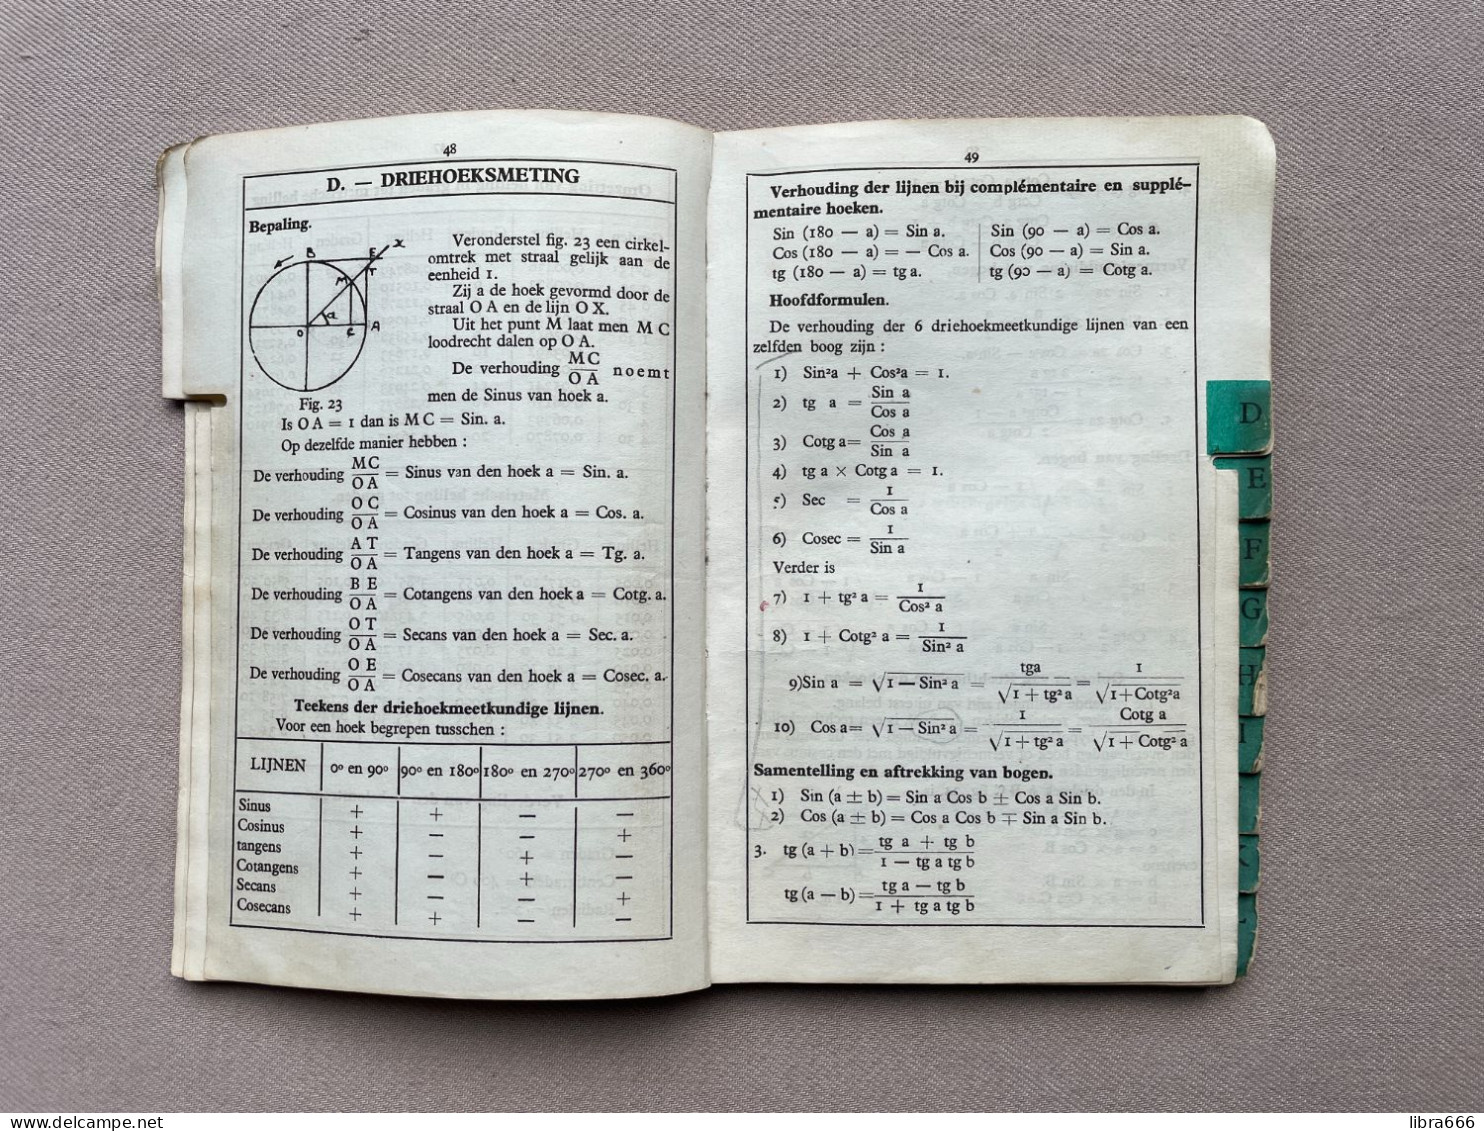 48
D. — DRIEHOEKSMETING
Bepaling.
B
E
x
T
M
a
O
C
A
Fig. 23
Veronderstel fig. 23 een cirkel-
omtrek met straal gelijk aan de
eenheid 1.
Zij a de hoek gevormd door de
straal O A en de lijn O X.
Uit het punt M laat men M C
loodrecht dalen op O A.
De verhouding MC/OA noemt
men de Sinus van hoek a.
Is O A = 1 dan is M C = Sin. a.
Op dezelfde manier hebben :
De verhouding MC/OA = Sinus van den hoek a = Sin. a.
De verhouding OC/OA = Cosinus van den hoek a = Cos. a.
De verhouding AT/OA = Tangens van den hoek a = Tg. a.
De verhouding BE/OA = Cotangens van den hoek a = Cotg. a.
De verhouding OT/OA = Secans van den hoek a = Sec. a.
De verhouding OE/OA = Cosecans van den hoek a = Cosec. a.
Teekens der driehoekmeetkundige lijnen.
Voor een hoek begrepen tusschen :
LIJNEN 0° en 90° 90° en 180° 180° en 270° 270° en 360°
Sinus + + — —
Cosinus + — — +
tangens + — + —
Cotangens + — + —
Secans + — — +
Cosecans + + — —
49
Verhouding der lijnen bij complémentaire en supplé-
mentaire hoeken.
Sin (180 — a) = Sin a. Sin (90 — a) = Cos a.
Cos (180 — a) = — Cos a. Cos (90 — a) = Sin a.
tg (180 — a) = tg a. tg (90 — a) = Cotg a.
Hoofdformulen.
De verhouding der 6 driehoekmeetkundige lijnen van een
zelfden boog zijn :
1) Sin²a + Cos²a = 1.
2) tg a = Sin a/Cos a
3) Cotg a = Cos a/Sin a
4) tg a × Cotg a = 1.
5) Sec = 1/Cos a
6) Cosec = 1/Sin a
Verder is
7) 1 + tg² a = 1/Cos² a
8) 1 + Cotg² a = 1/Sin² a
9) Sin a = √1 — Sin² a = tga/√1 + tg² a = 1/√1+Cotg²a
10) Cos a = √1 — Sin² a = 1/√1 + tg² a = Cotg a/√1 + Cotg² a
Samentelling en aftrekking van bogen.
1) Sin (a ± b) = Sin a Cos b ± Cos a Sin b.
2) Cos (a ± b) = Cos a Cos b ∓ Sin a Sin b.
3. tg (a + b) = tg a + tg b/1 — tg a tg b
tg (a — b) = tg a — tg b/1 + tg a tg b
D
E
F
G
H
I
K
delcampe.net
libra666